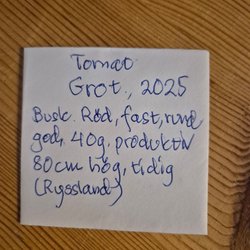 Tomat
Grot., 2025
Busk. Röd, fast, rund
god, 40g, produktiv
80cm hög, tidig
(Ryssland)